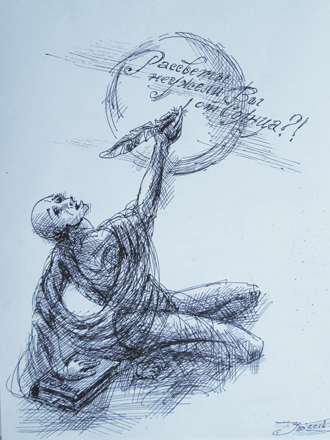 Рассветы
неужели Вы
от солнца?!